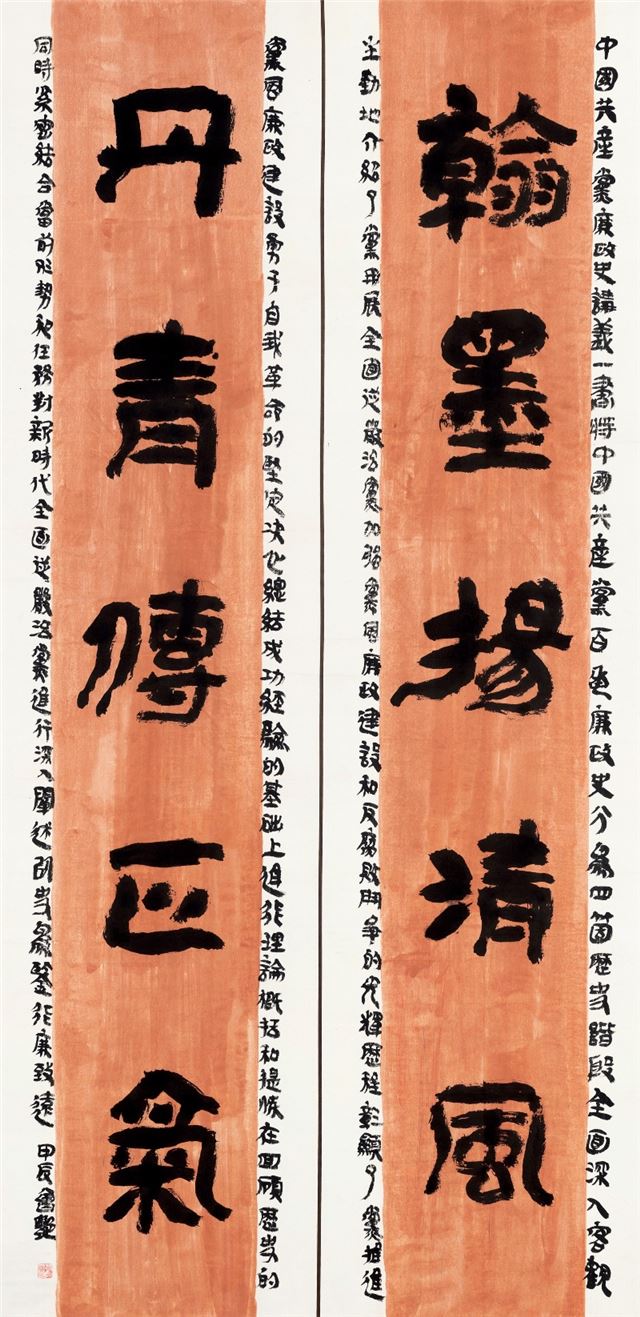 翰墨揚清風
丹青傳正氣
中國共產黨廉政史講義一書將中國共產黨百年廉政史分為四箇歷史階段全面深入客觀
生動地介紹了黨開展全面從嚴治黨加強黨風廉政建設和反腐敗鬥爭的光輝歷程彰顯了黨推進
黨風廉政建設勇于自我革命的堅定决心總結成功經驗的基础上進行理論概括和提煉在回顧歷史的
同時緊密結合當前形勢和任務對新時代全面從嚴治黨進行深入闡述史為鑒行廉致遠 甲辰